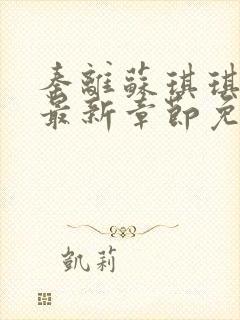 秦離蘇琪琪
最新章節免
凱莉